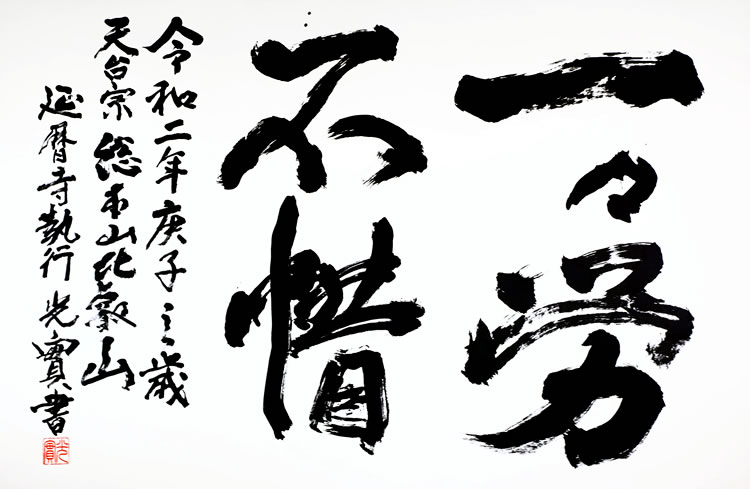 一々労
不惜
令和二年庚子之歳
天台宗総本山比叡山
延暦寺執行 光實書
光實